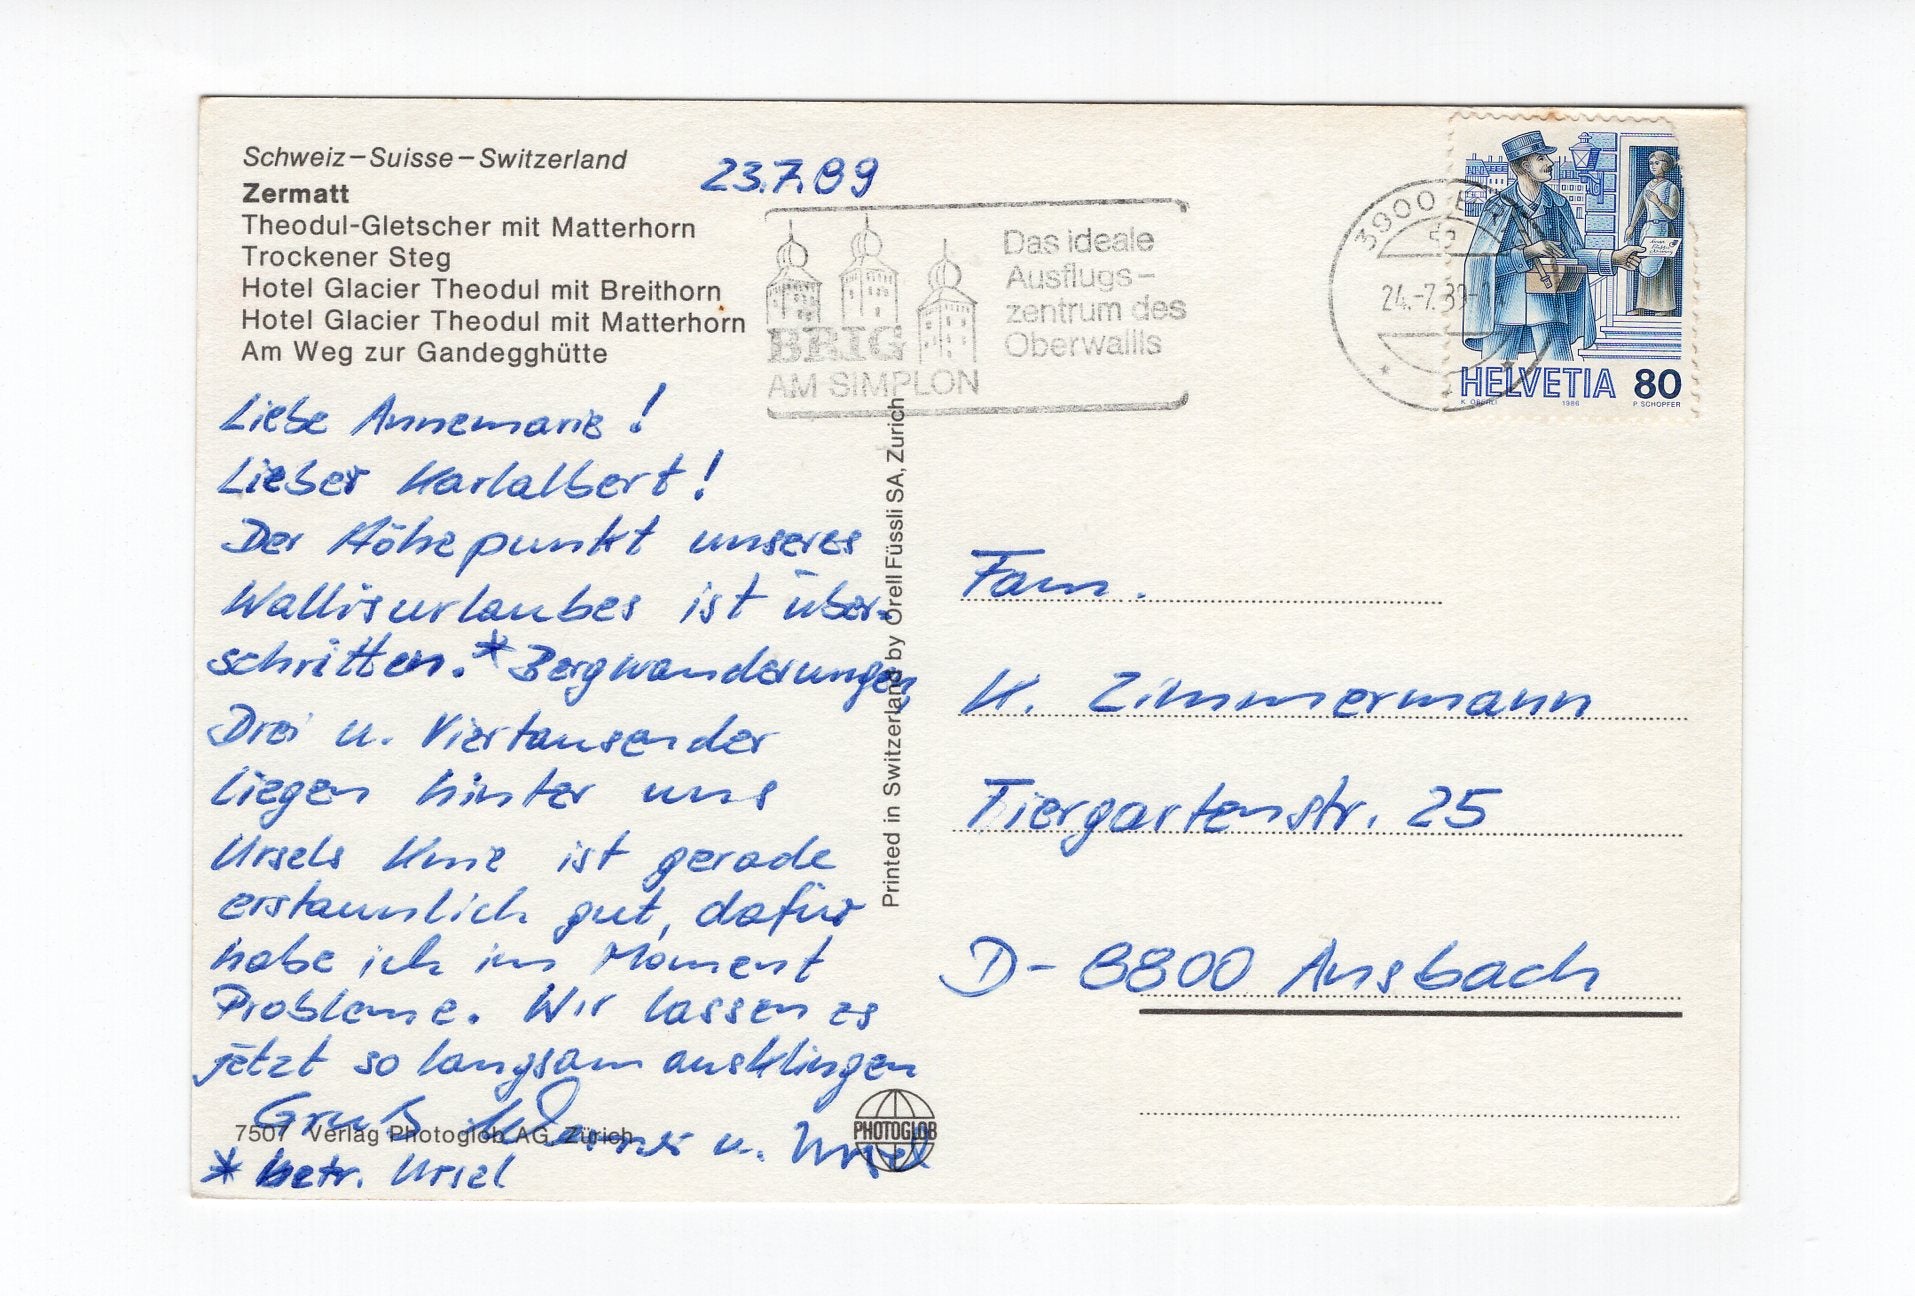 Schweiz–Suisse–Switzerland
Zermatt
Theodul-Gletscher mit Matterhorn
Trockener Steg
Hotel Glacier Theodul mit Breithorn
Hotel Glacier Theodul mit Matterhorn
Am Weg zur Gandegghütte
23.7.89
BRIG
AM SIMPLON
Das ideale
Ausflugs-
zentrum des
Oberwallis
3900
24.-7.89
HELVETIA 80
K OBERLI 1986 P SCHOPFER
Liebe Annemarie!
Lieber Karlalbert!
Der Höhepunkt unseres
Wallisurlaubes ist über-
schritten.* Bergwanderungen
Drei u. Viertausender
liegen hinter uns
Ursels Knie ist gerade
erstaunlich gut, dafür
habe ich im Moment
Probleme. Wir lassen es
jetzt so langsam ausklingen
Gruß Werner u. Ursel
* betr. Ursel
7507 Verlag Photoglob AG, Zürich
PHOTOGLOB
Printed in Switzerland by Orell Füssli SA, Zurich
Fam.
K. Zimmermann
Tiergartenstr. 25
D-8800 Ansbach